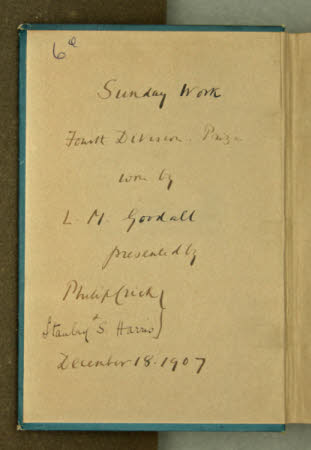 6d
Sunday Work
Fourth Division. Prize
won by
L. M. Goodall
presented by
Philip Crick
& Stanley S. Harris
December 18. 1907